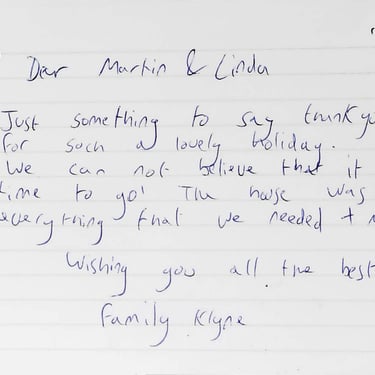 Dear Martin & Linda
Just something to say thank yo
for such a lovely holiday.
We can not believe that it
time to go! The house was
everything that we needed +
Wishing you all the best
Family Klyne